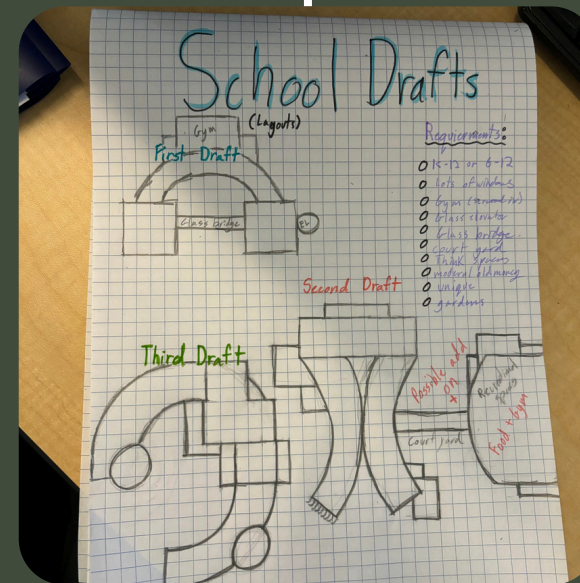 School Drafts
(Layouts)
Gym
First Draft
Glass bridge
Requirements:
K-12 or 6-12
Lots of windows
Gym
Glass elevator
Glass bridge
court yard
Think spaces
unique
gardens
Second Draft
Third Draft
Possible add
on +
Court yard
Food + Gym